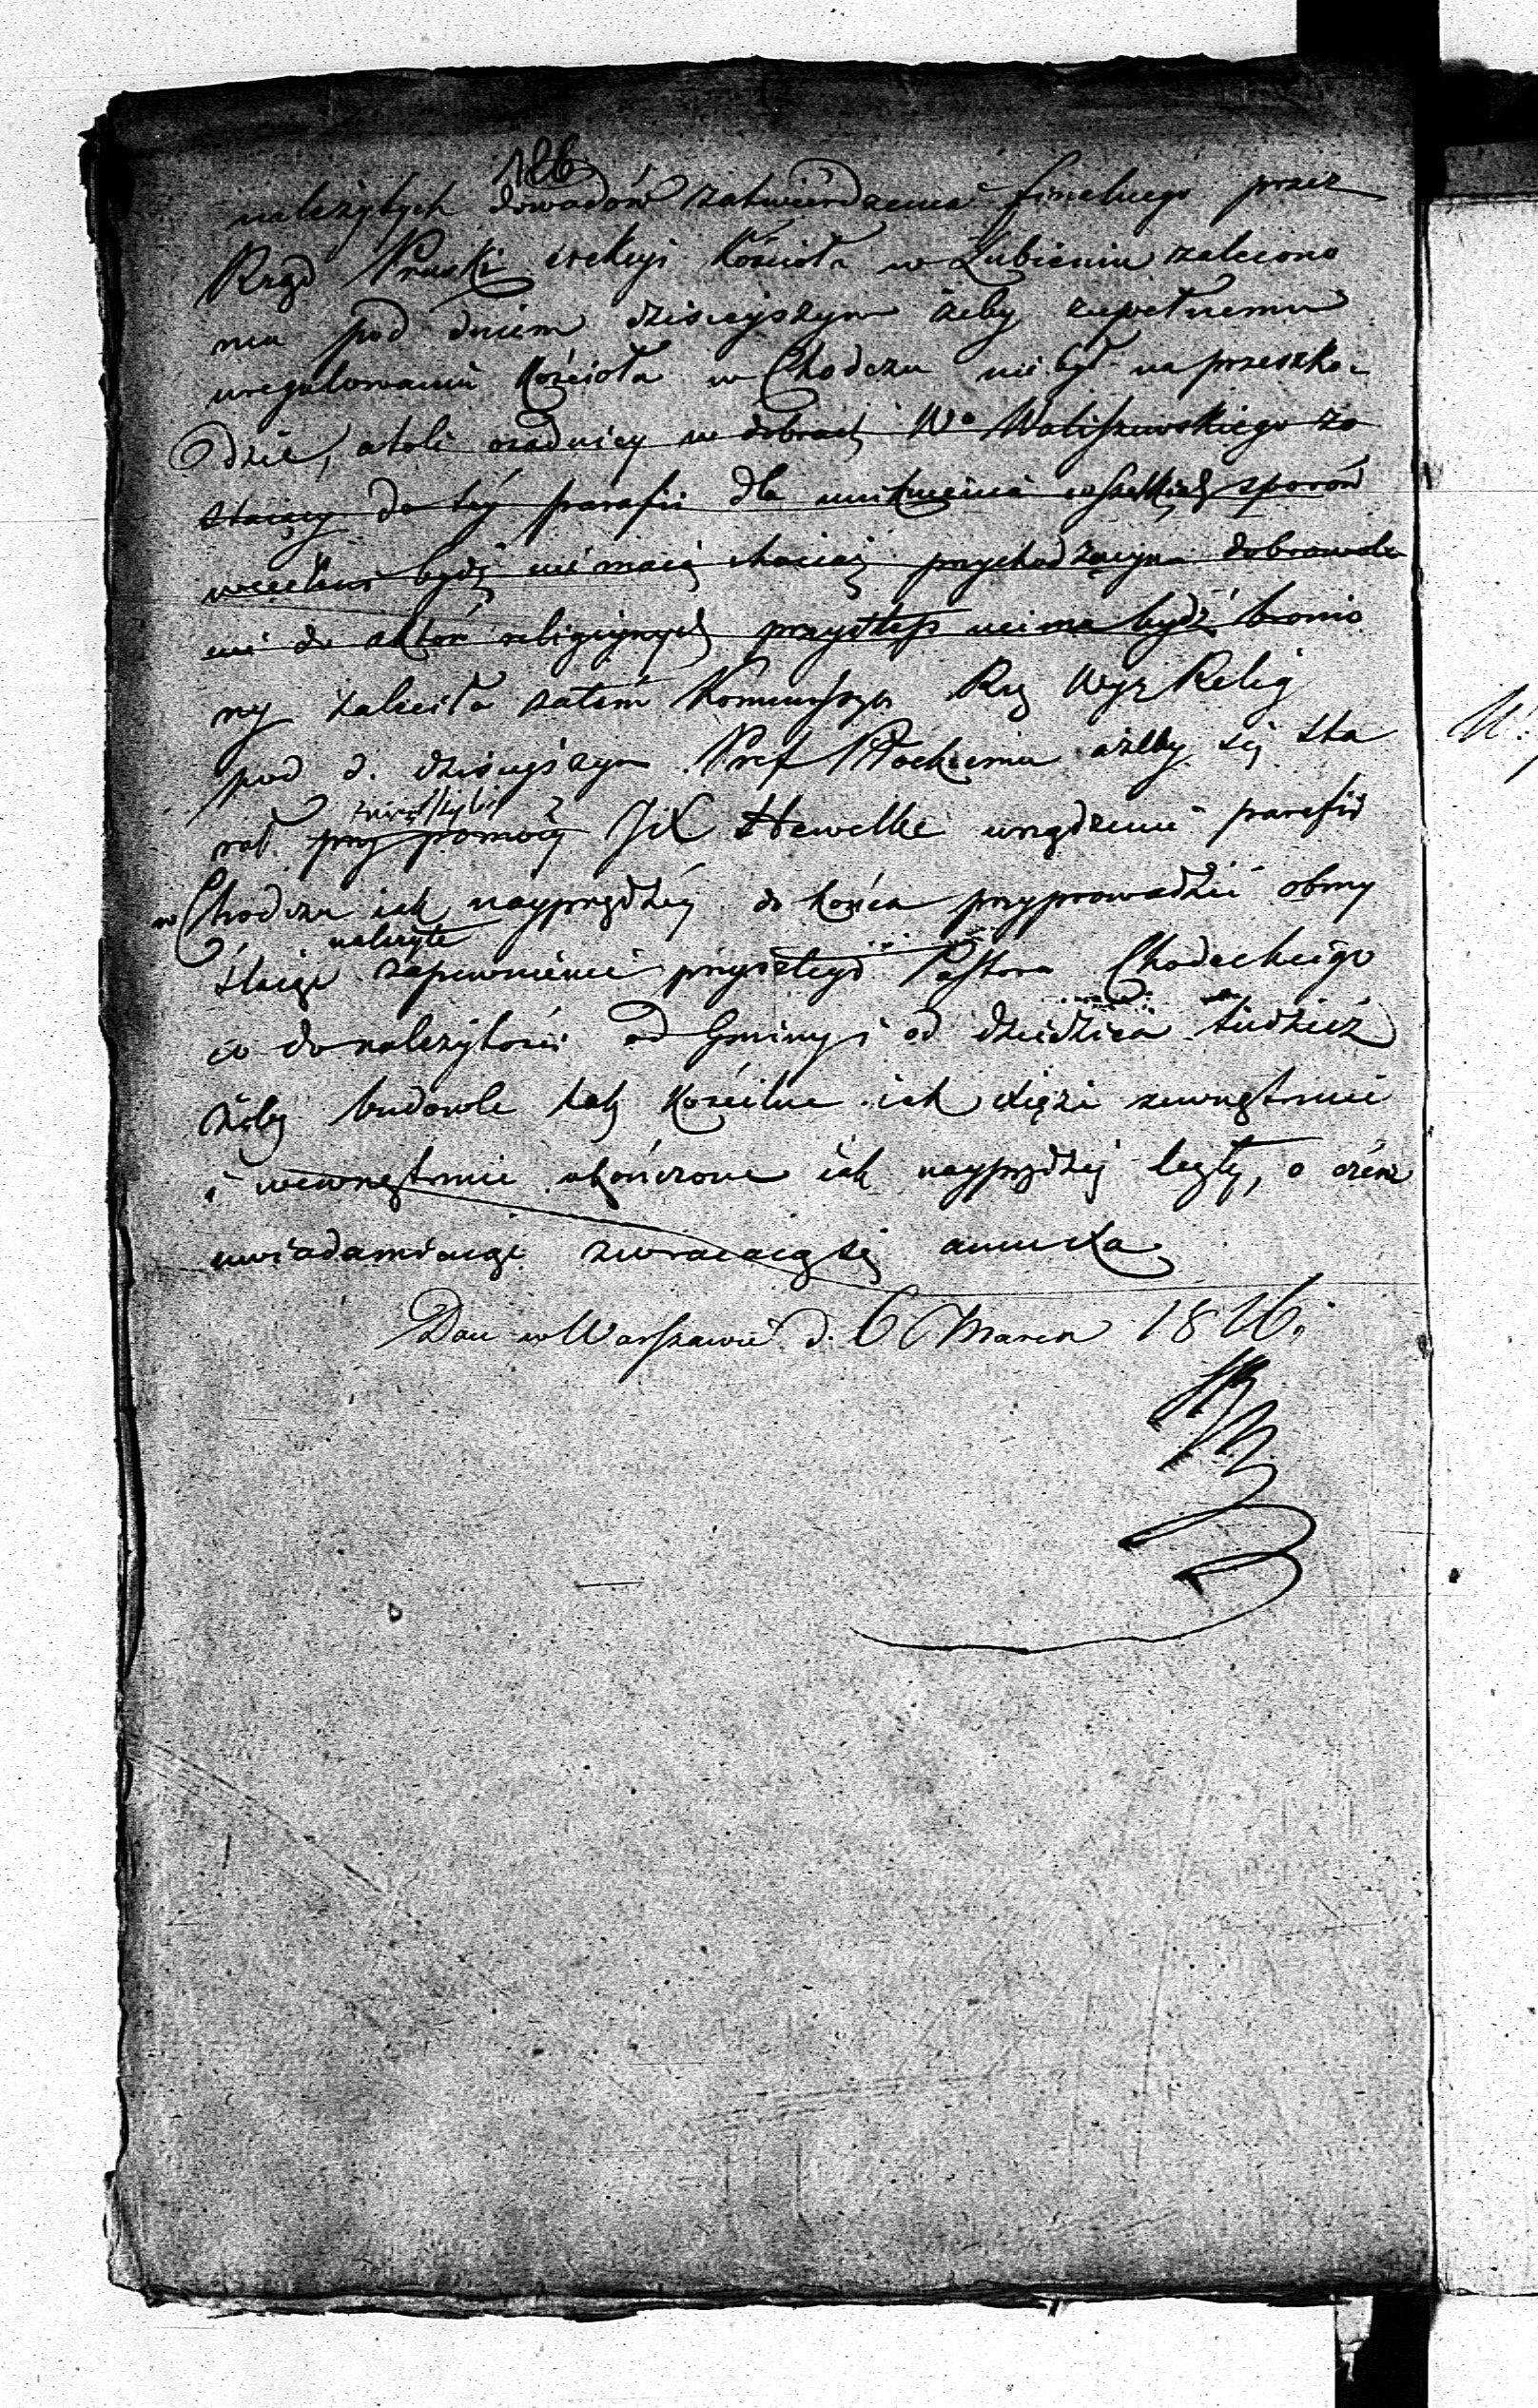 186
należytych dowodów zatwierdzenia finalnego przez
Rząd Pruski erekcyi kościoła w Lubieniu zalecono
mu pod dniem dzisieyszym żeby zupełnemu
uregulowaniu kościoła w Chodczu nie był na przeszko-
dzie, atoli osadnicy w dobrach Wo Waliszewskiego zo
staiący do téy parafii dla uniknienia wszelkich sporów
wcieleni bydź nie maią chociaż przychodzącym dobrowol
nie do aktów religiynych przystęp nie ma bydź bronio
ny zaleciła zatém Kommissya Rzą Wyz Relig
pod d. dzisieyszym Pref Płockiemu ażeby się sta
rał przy pomocy JX Hewelke urządzenie parafii
w Chodczu iak nayprędzéy do końca przyprowadzić obmy
należyte
ślaiąc zapewnienie przyszłego Pastora Chodeckiego
co do należytości od Gminy i od dziedzica tudzież
żeby budowle tak kościelne iak xięże zewnętrznie
i wewnętrznie ukończone iak nayprędzéy były, o czém
uwiadamiaiąc zwracaią się annexa
Dan w Warszawie d. 6 Marca 1816.